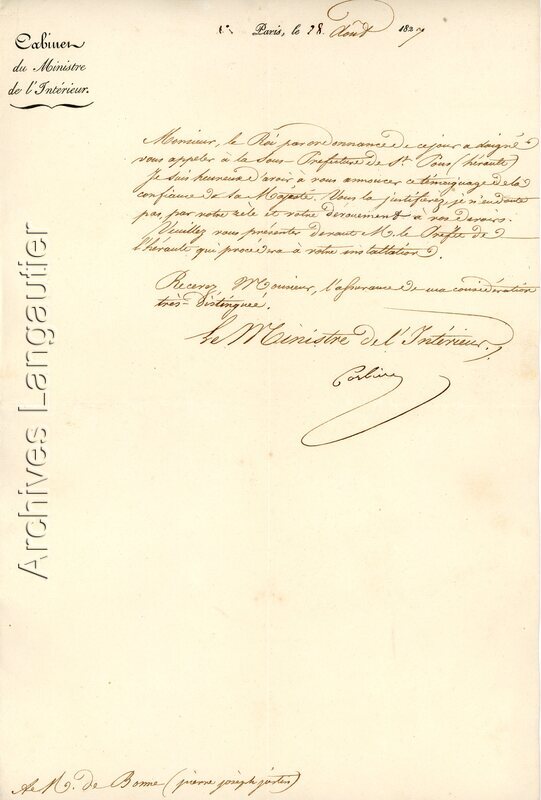 Cabinet
du Ministre
de l'Intérieur.
Paris, le 28 Août 1827
Monsieur, le Roi par ordonnance de ce jour a daigné
vous appeler à la Sous Prefecture de St. Pons (hérault)
Je suis heureux d'avoir à vous annoncer ce témoignage de la
confiance de Sa Majesté. Vous la justifierez, je n'en doute
pas, par votre zele et votre dévouement à vos devoirs.
Veuillez vous présenter devant M. le Préfet de
l'hérault qui procédera à votre installation.
Recevez Monsieur, l'assurance de ma considération
très-distinguée.
Le Ministre de l'Intérieur,
Corbière
Archives Langautier
A M. de Bonne (pierre joseph justin)